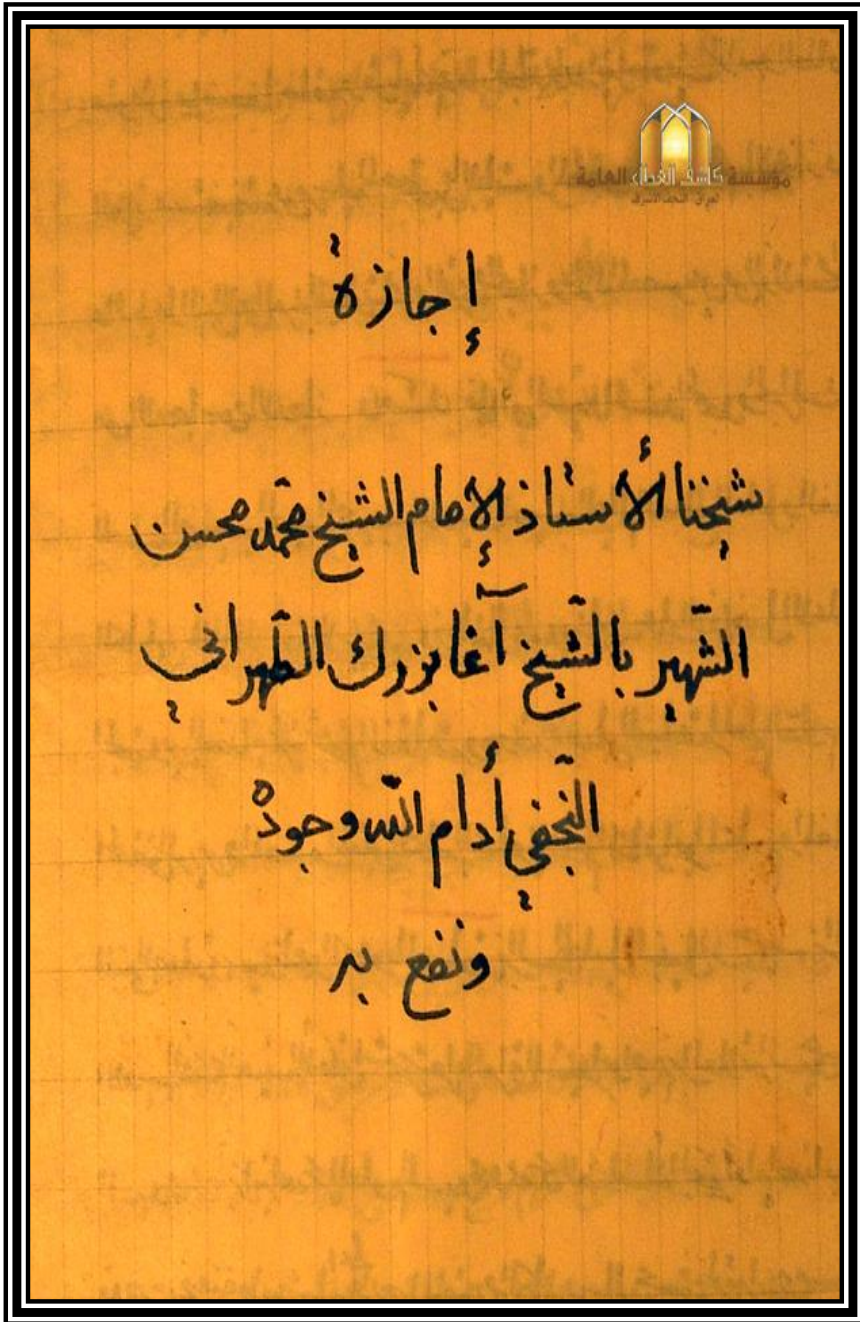 مؤسسة كاشف الغطاء العامة
إجازة
شيخنا الأستاذ الإمام الشيخ محمّد محسن
الشّهير بالشّيخ آغا بزرك الطّهراني
النّجفي أدام الله وجودهُ
ونفع به